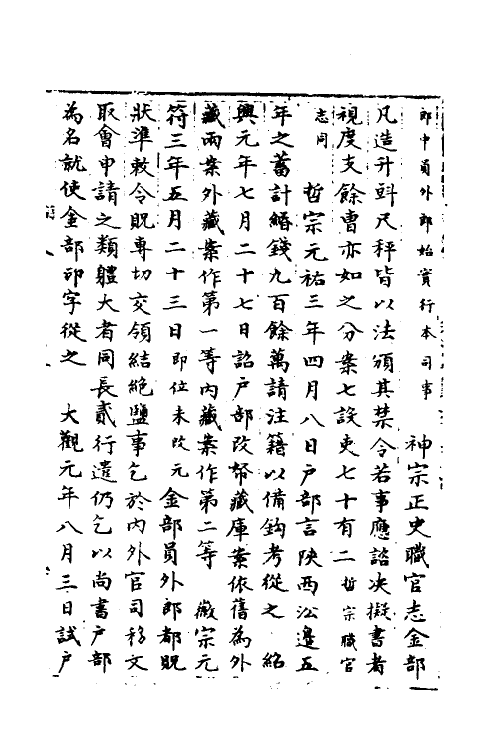 郎中員外郎始實行本司事　神宗正史職官志金部
凡造升㪷尺秤皆以法頒其禁令若事應諮决擬書者
視度支餘曹亦如之分案七設吏七十有二哲宗職官
志同　哲宗元祐三年四月八日户部言陝西㳂邊五
年之蓄計緡錢九百餘萬請注籍以備鈎考從之　紹
興元年七月二十七日詔户部改帑藏庫案依舊為外
藏兩案外藏案作第一等内藏案作第二等　徽宗元
符三年五月二十三日即位未改元金部員外郎都貺
狀準敕令貺專切交領結絶鹽事乞於内外官司移文
取會申請之類體大者同長貳行遣仍乞以尚書户部
為名就使金部印字從之　大觀元年八月三日試户